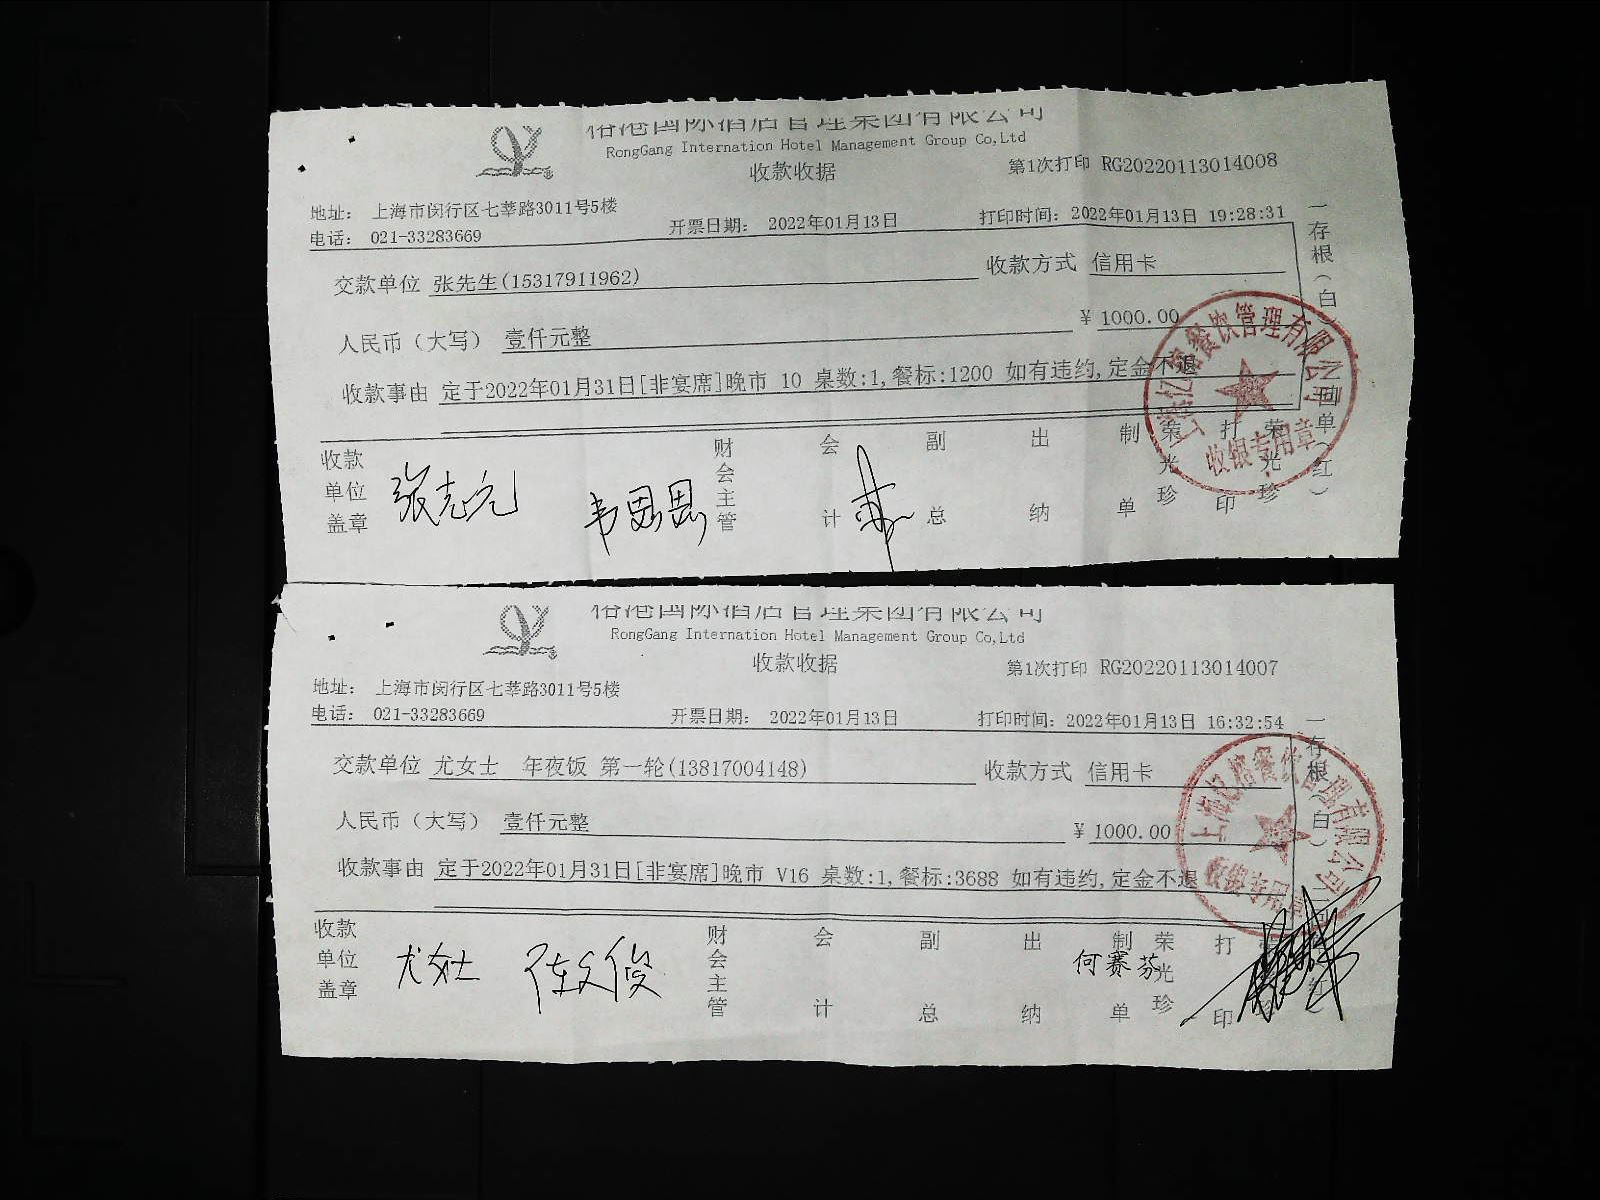 俗港国际酒店管理集团有限公司
RongGang Internation Hotel Management Group Co,Ltd
收款收据
第1次打印 RG20220113014008
地址： 上海市闵行区七莘路3011号5楼
电话： 021-33283669
开票日期： 2022年01月13日
打印时间：2022年01月13日 19:28:31
交款单位 张先生(15317911962)
收款方式 信用卡
人民币（大写） 壹仟元整
￥ 1000.00
收款事由 定于2022年01月31日[非宴席]晚市 10 桌数:1,餐标:1200 如有违约,定金不退
收款单位盖章
张志元
韦思思
财会主管
会计
副总
出纳
制单
荣光珍
打印
荣光珍
一存根(白)
回单(红)
餐饮管理有限公司
收银专用章
俗港国际酒店管理集团有限公司
RongGang Internation Hotel Management Group Co,Ltd
收款收据
第1次打印 RG20220113014007
地址： 上海市闵行区七莘路3011号5楼
电话： 021-33283669
开票日期： 2022年01月13日
打印时间：2022年01月13日 16:32:54
交款单位 尤女士 年夜饭 第一轮(13817004148)
收款方式 信用卡
人民币（大写） 壹仟元整
￥ 1000.00
收款事由 定于2022年01月31日[非宴席]晚市 V16 桌数:1,餐标:3688 如有违约,定金不退
收款单位盖章
尤女士
陈文俊
财会主管
会计
副总
出纳
制单
何赛芬
荣光珍
打印
一存根(白)
收银专用章